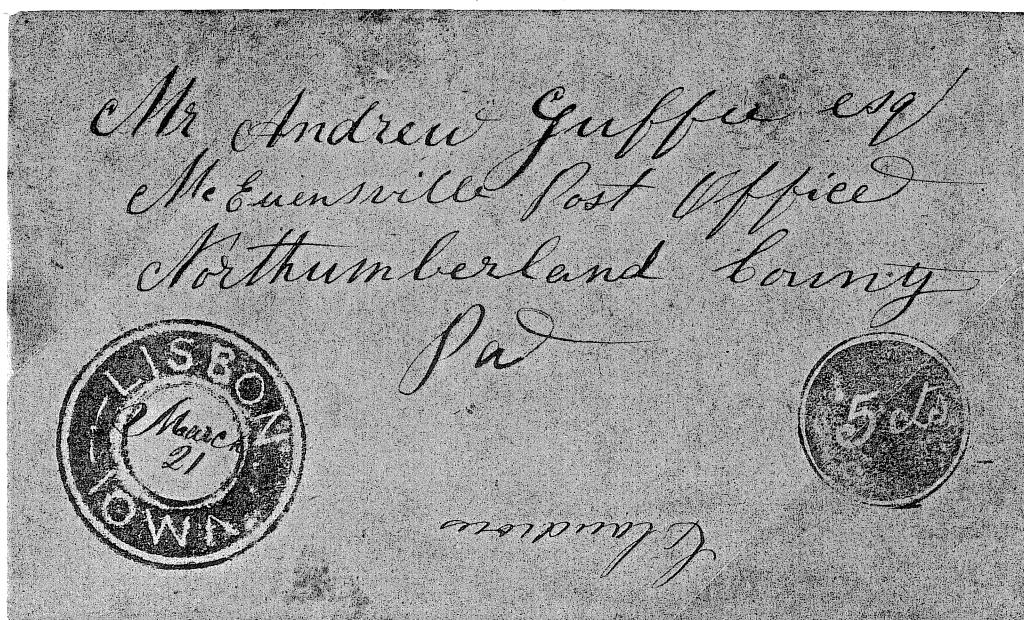 Mr Andrew Guffee esq
McEuensville Post Office
Northumberland County
Pa
LISBON
IOWA
March
21
5 cts